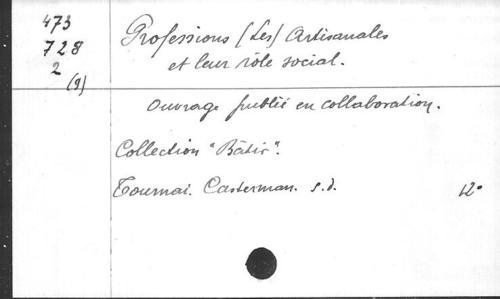 473
728
2
(9)
Professions (Les) Artisanales
et leur rôle social.
Ouvrage publié en collaboration.
Collection "Bâtir".
Tournai. Casterman. s.d. 12°